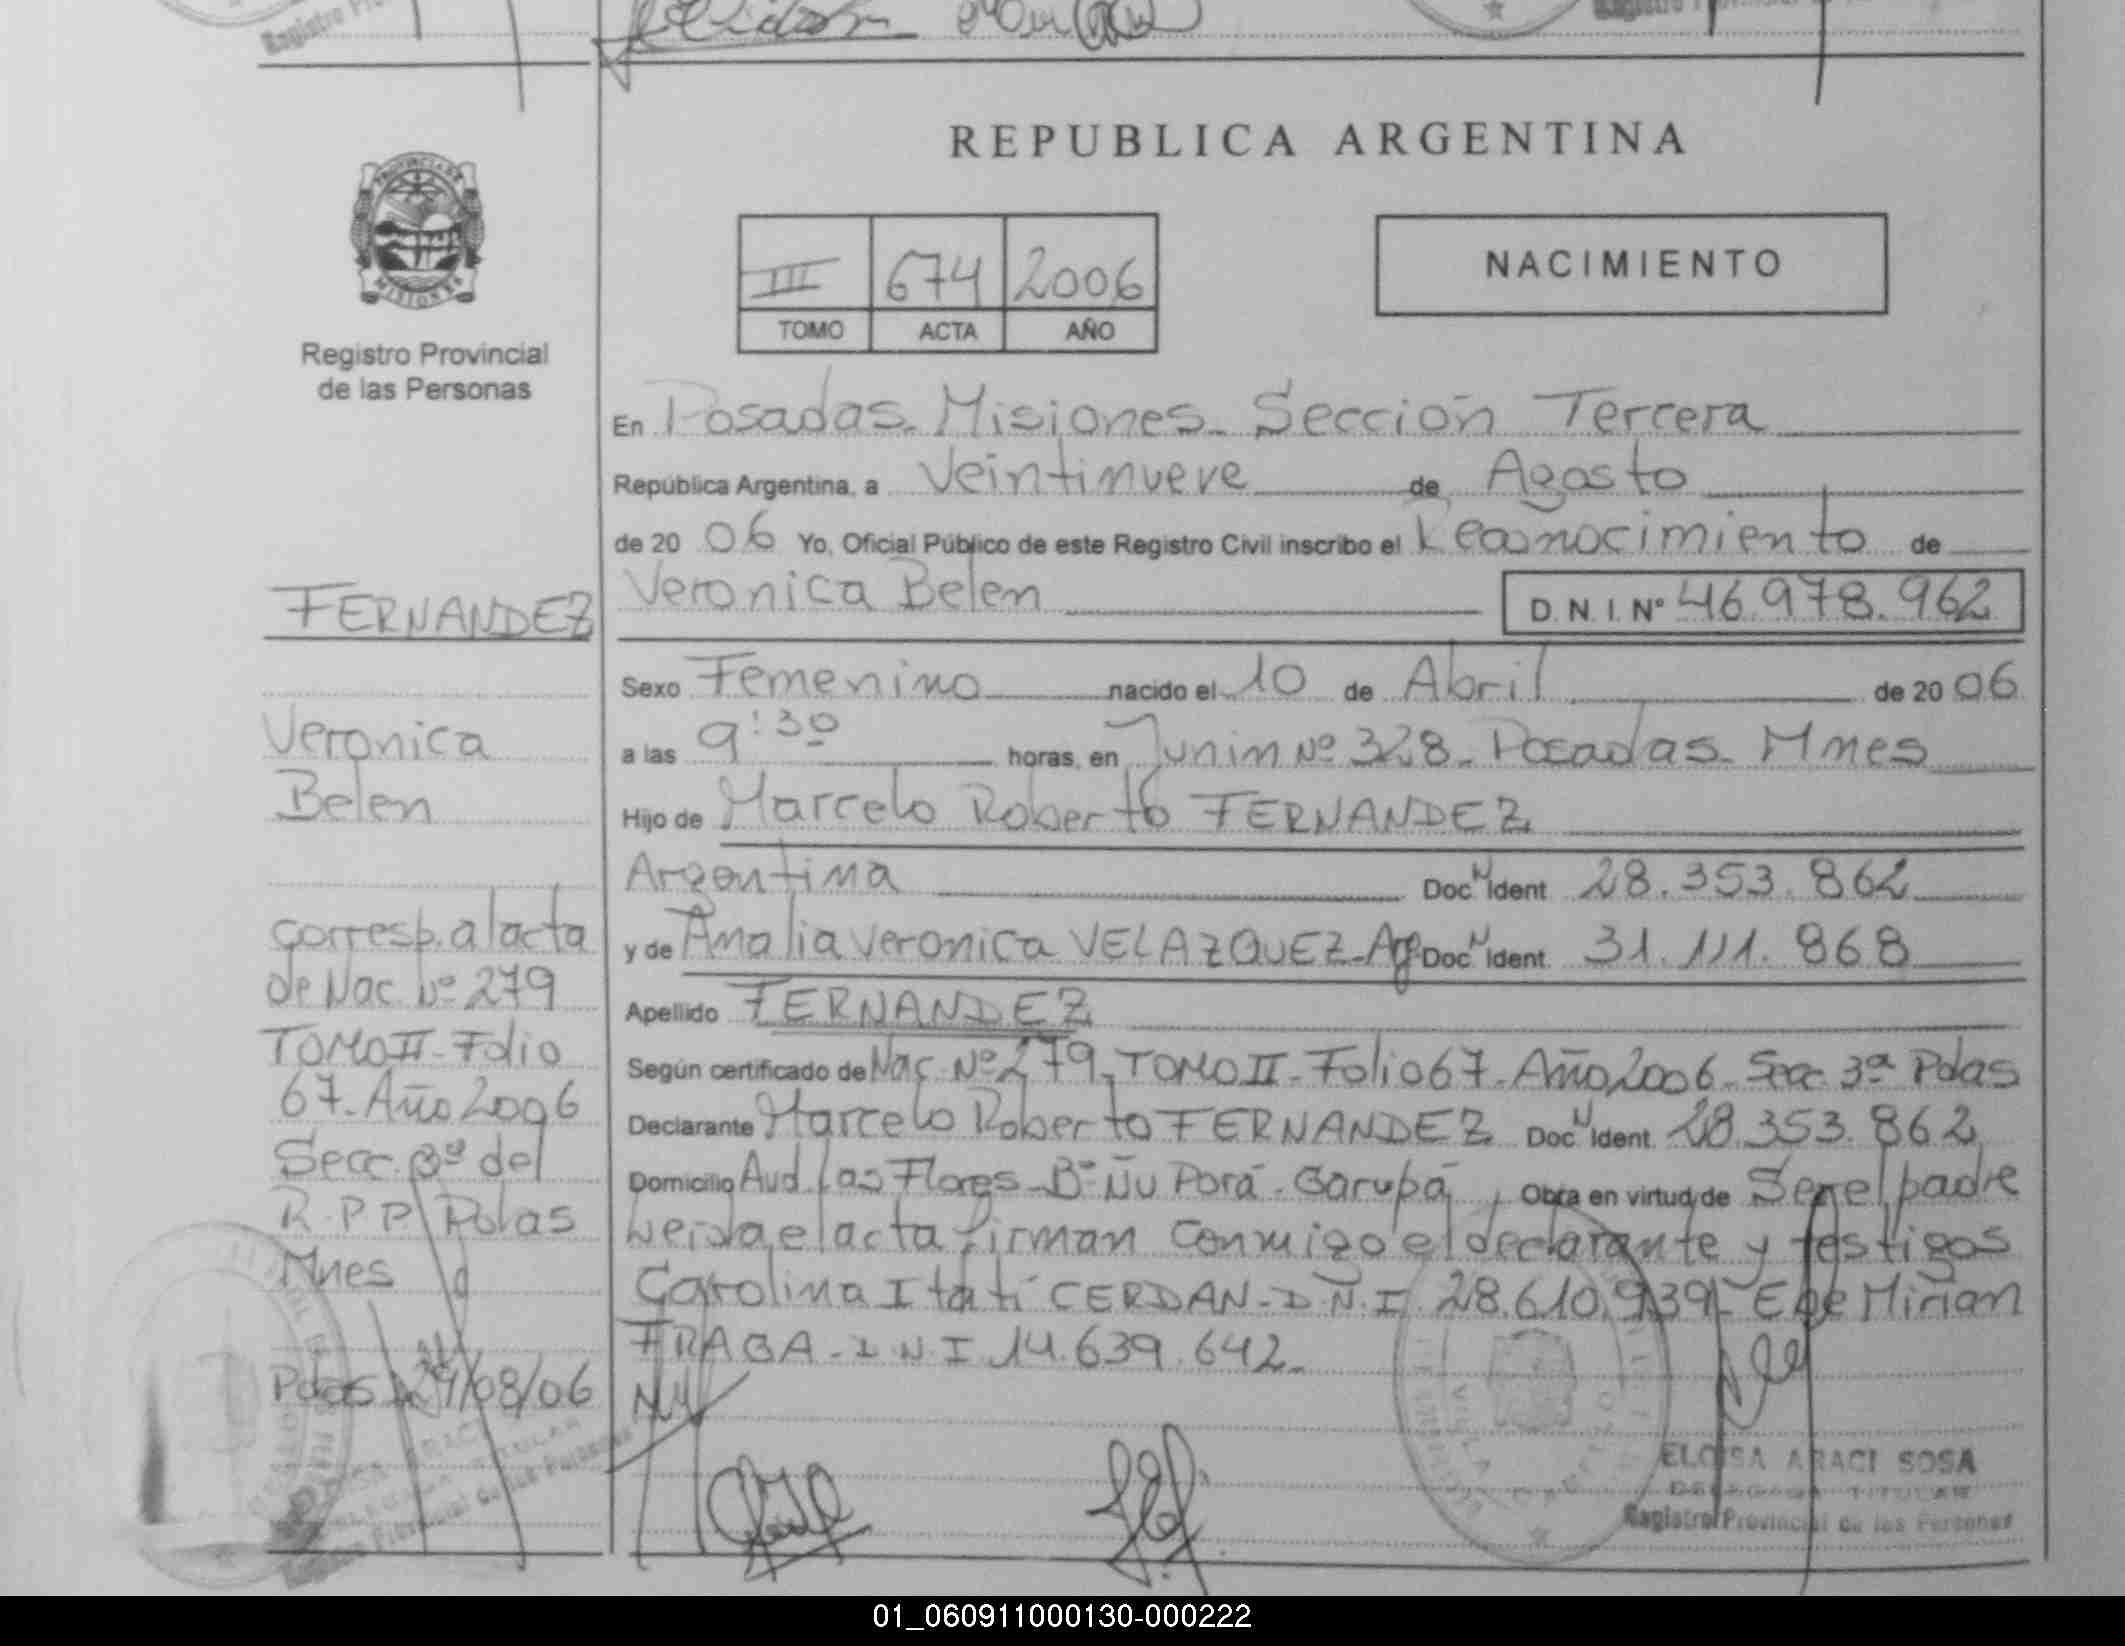 REPUBLICA ARGENTINA
PROVINCIA DE
MISIONES
Registro Provincial
de las Personas
III 674 2006
TOMO ACTA AÑO
NACIMIENTO
En Posadas. Misiones. Sección Tercera
República Argentina, a Veintinueve de Agosto
de 20 06 Yo, Oficial Público de este Registro Civil inscribo el Reconocimiento de
Veronica Belen D. N. I. Nº 46.978.962
Sexo Femenino nacido el 10 de Abril de 20 06
a las 9:30 horas, en Junin Nº 328. Posadas. Mnes
Hijo de Marcelo Roberto FERNANDEZ
Argentina Doc. N Ident 28.353.862
y de Amalia Veronica VELAZQUEZ-Arg Doc. N Ident. 31.111.868
Apellido FERNANDEZ
Según certificado de Nac. Nº 279-TOMO II-Folio 67-Año 2006-Secc. 3ª Pdas
Declarante Marcelo Roberto FERNANDEZ Doc. N Ident. 28.353.862
Domicilio Avd. Las Flores-Bº Ñu Porá-Garupá, Obra en virtud de Ser el padre
Leida el acta firman conmigo el declarante y testigos
Carolina Itatí CERDAN-D.N.I. 28.610.939- Ebe Mirian
FRAGA-D.N.I 14.639.642-
FERNANDEZ
Veronica
Belen
corresp. al acta
de Nac. Nº 279
TOMO II-Folio
67-Año 2006
Secc. 3ª del
R.P.P. Pdas
Mnes
Pdas 29/08/06
ELOISA ARACI SOSA
DELEGADA TITULAR
Registro Provincial de las Personas
01_060911000130-000222